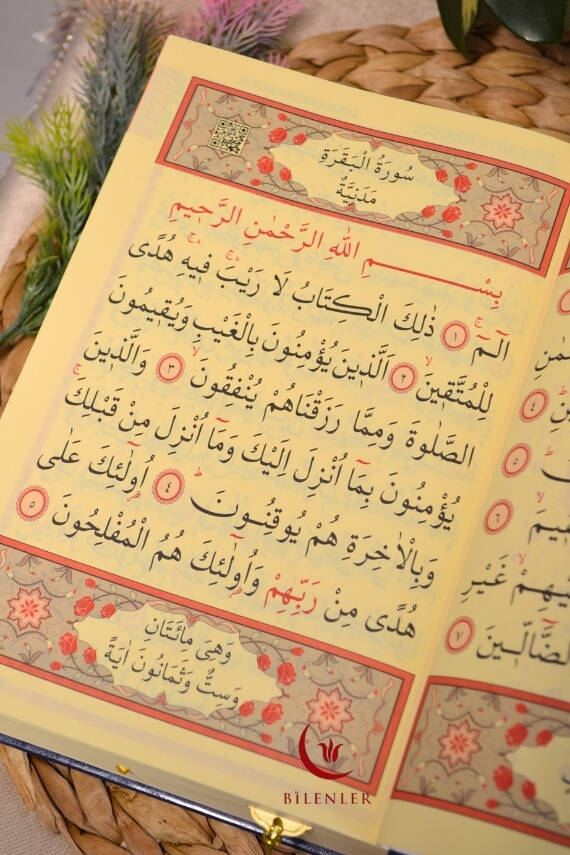 سُورَةُ الْبَقَرَةِ
مَدَنِيَّةٌ
بِسْمِ اللهِ الرَّحْمٰنِ الرَّحِيمِ
الٓمٓ ۚ ﴿١﴾ ذٰلِكَ الْكِتَابُ لَا رَيْبَ ۚۛ فِيهِ ۚۛ هُدًى
لِلْمُتَّقِينَ ۙ ﴿٢﴾ اَلَّذِينَ يُؤْمِنُونَ بِالْغَيْبِ وَيُقِيمُونَ
الصَّلٰوةَ وَمِمَّا رَزَقْنَاهُمْ يُنْفِقُونَ ۙ ﴿٣﴾ وَالَّذِينَ
يُؤْمِنُونَ بِمَٓا اُنْزِلَ اِلَيْكَ وَمَٓا اُنْزِلَ مِنْ قَبْلِكَ ۚ
وَبِالْاٰخِرَةِ هُمْ يُوقِنُونَ ۜ ﴿٤﴾ اُو۬لٰٓئِكَ عَلٰى
هُدًى مِنْ رَبِّهِمْ وَاُو۬لٰٓئِكَ هُمُ الْمُفْلِحُونَ ﴿٥﴾
وَهِىَ مِائَتَانِ
وَسِتٌّ وَثَمَانُونَ اٰيَةً
﴿٤﴾
﴿٥﴾
﴿٦﴾
غَيْرِ
﴿٧﴾
BİLENLER